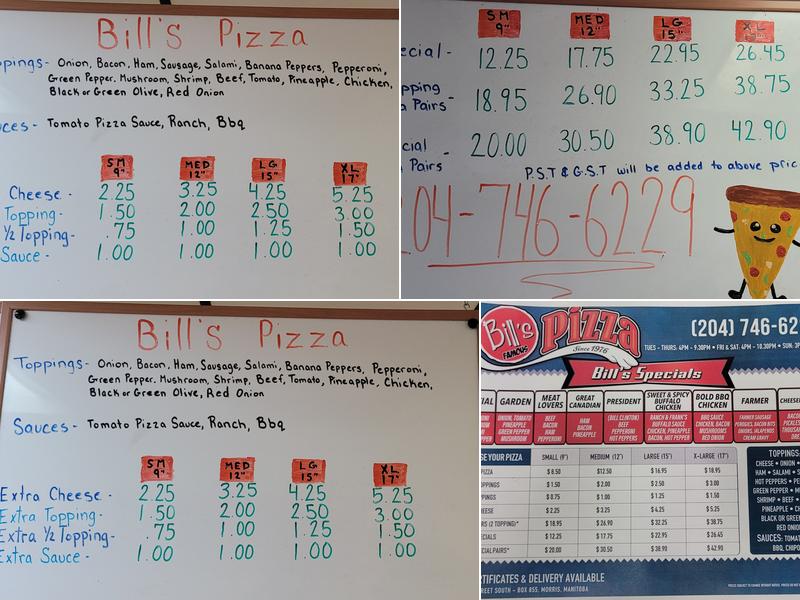 Bill's Pizza
Onion, Bacon, Ham, Sausage, Salami, Banana Peppers, Pepperoni,
Green Pepper, Mushroom, Shrimp, Beef, Tomato, Pineapple, Chicken,
Black or Green Olive, Red Onion
Tomato Pizza Sauce, Ranch, Bbq
SM 9" MED 12" LG 15" XL 17"
Cheese - 2.25 3.25 4.25 5.25
Topping - 1.50 2.00 2.50 3.00
½ Topping - .75 1.00 1.25 1.50
Sauce - 1.00 1.00 1.00 1.00
SM 9" MED 12" LG 15" XL
12.25 17.75 22.95 26.45
18.95 26.90 33.25 38.75
Pairs -
20.00 30.50 38.90 42.90
Pairs -
P.S.T & G.S.T will be added to above pric
04-746-6229
Bill's Pizza
Toppings - Onion, Bacon, Ham, Sausage, Salami, Banana Peppers, Pepperoni,
Green Pepper, Mushroom, Shrimp, Beef, Tomato, Pineapple, Chicken,
Black or Green Olive, Red Onion
Sauces - Tomato Pizza Sauce, Ranch, Bbq
SM 9" MED 12" LG 15" XL 17"
Extra Cheese - 2.25 3.25 4.25 5.25
Extra Topping - 1.50 2.00 2.50 3.00
Extra ½ Topping - .75 1.00 1.25 1.50
Extra Sauce - 1.00 1.00 1.00 1.00
Bill's FAMOUS Pizza
Since 1976
(204) 746-62
TUES - THURS: 4PM - 9:30PM • FRI & SAT: 4PM - 10:30PM • SUN:
Bill's Specials
GARDEN MEAT LOVERS GREAT CANADIAN PRESIDENT SWEET & SPICY BUFFALO CHICKEN BOLD BBQ CHICKEN FARMER
ONION, TOMATO PINEAPPLE GREEN PEPPER MUSHROOM
BEEF BACON HAM PEPPERONI
HAM BACON PINEAPPLE
(BILL CLINTON) BEEF PEPPERONI HAM
RANCH & FRANK'S BUFFALO SAUCE CHICKEN, PINEAPPLE BACON, HOT PEPPER
BBQ SAUCE CHICKEN, BACON MUSHROOMS RED ONION
FARMER SAUSAGE PEROGIES, BACON BITS ONIONS, JALAPENOS CREAM GRAVY
YOUR PIZZA SMALL (9") MEDIUM (12") LARGE (15") X-LARGE (17")
PIZZA $ 8.50 $12.50 $ 16.95 $ 18.95
$ 1.50 $ 2.00 $ 2.50 $ 3.00
$ 0.75 $ 1.00 $ 1.25 $ 1.50
$ 2.25 $ 3.25 $ 4.25 $ 5.25
(2 TOPPING)* $ 18.95 $ 26.90 $ 32.25 $ 38.75
$ 12.25 $ 17.75 $ 22.95 $ 26.45
$ 20.00 $ 30.50 $ 38.90 $ 42.90
TOPPINGS:
CHEESE • ONION •
HAM • SALAMI •
HOT PEPPERS •
GREEN PEPPER •
SHRIMP • BEEF •
PINEAPPLE •
BLACK OR
RED
SAUCES:
BBQ,
& DELIVERY AVAILABLE
STREET SOUTH - BOX 855, MORRIS, MANITOBA